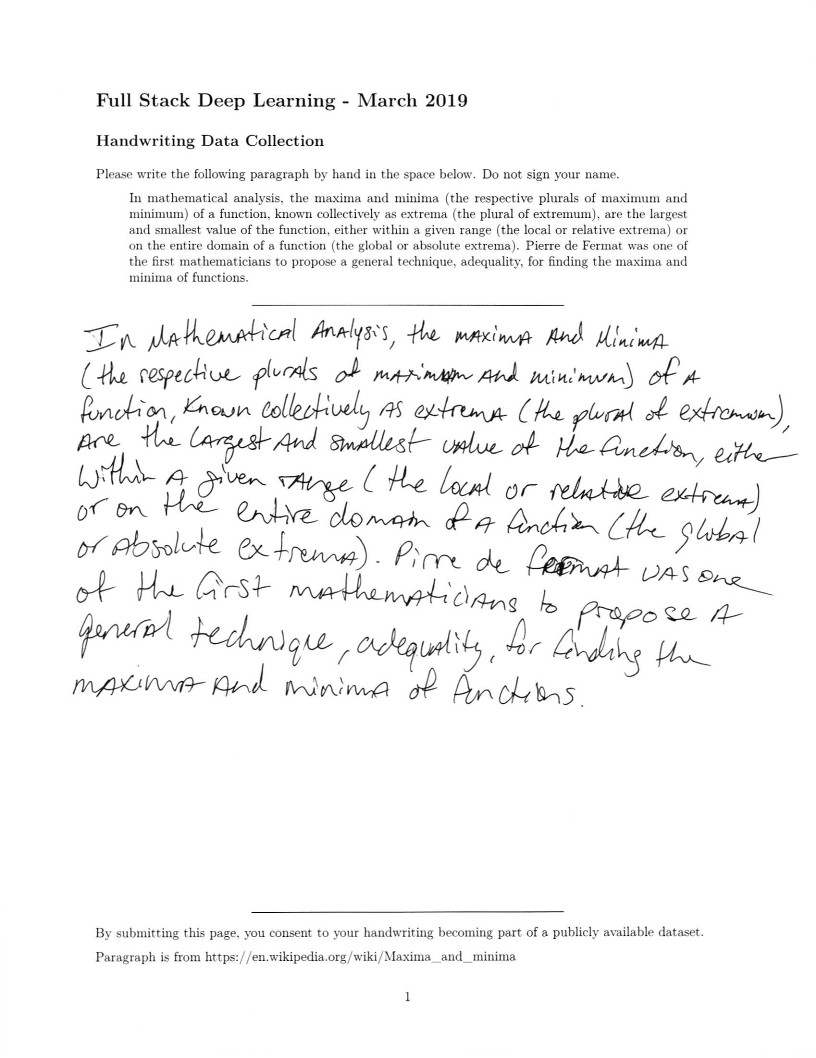 Full Stack Deep Learning - March 2019
Handwriting Data Collection
Please write the following paragraph by hand in the space below. Do not sign your name.
In mathematical analysis, the maxima and minima (the respective plurals of maximum and
minimum) of a function, known collectively as extrema (the plural of extremum), are the largest
and smallest value of the function, either within a given range (the local or relative extrema) or
on the entire domain of a function (the global or absolute extrema). Pierre de Fermat was one of
the first mathematicians to propose a general technique, adequality, for finding the maxima and
minima of functions.
In Mathematical Analysis, the maxima and Minima
(the respective plurals of maximum and minimum) of a
function, Known collectively as extrema (the plural of extremum),
are the largest and smallest value of the function, either
within a given range (the local or relative extrema)
or on the entire domain of a function (the global
or absolute extrema). Pirre de Fermat was one
of the first mathematicians to propose a
general technique, adequality, for finding the
maxima and minima of functions.
By submitting this page, you consent to your handwriting becoming part of a publicly available dataset.
Paragraph is from https://en.wikipedia.org/wiki/Maxima_and_minima
1